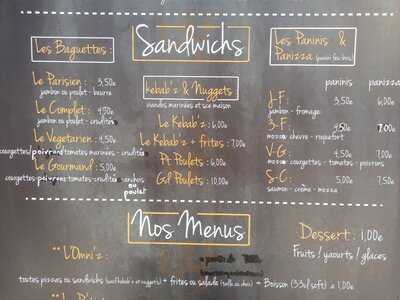 Sandwichs
Les Baguettes :
Le Parisien : 3,50€
jambon ou poulet - beurre
Le Complet : 4,50€
jambon ou poulet - crudités
Le Vegetarien : 4,50€
courgettes/poivrons tomates marinées - crudités
Le Gourmand : 5,00€
courgettes-poivrons tomates-crudités
au poulet
Kebab'z & Nuggets
viandes marinées et sce maison
Le Kebab'z : 6,00€
Le Kebab'z + frites : 7,00€
Pt Poulets : 6,00€
Gd Poulets : 10,00€
Les Paninis &
Panizza (panini feu bois)
paninis panizza
J-F : 3,50€ 6,00€
jambon - fromage
3-F : 4,50€ 7,00€
mozza chèvre - roquefort
V-G : 4,50€ 7,00€
mozza courgettes - tomates - poivrons
S-C : 5,00€ 7,50€
saumon - crème - mozza
Nos Menus
Dessert : 1,00€
Fruits / yaourts / glaces
** L'Omni'z :
à partir de
toutes pizzas ou sandwichs (sauf kebab's et nuggets) + frites ou salade + Boisson (33cl/soft)